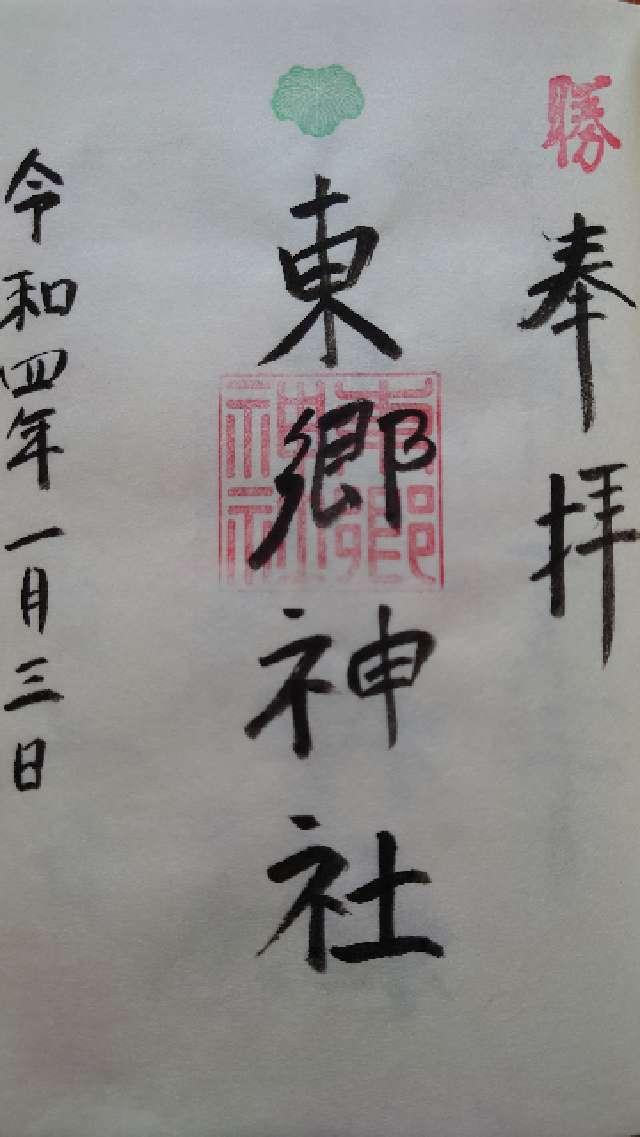 勝
奉拝
東郷神社
東郷神社
令和四年一月三日